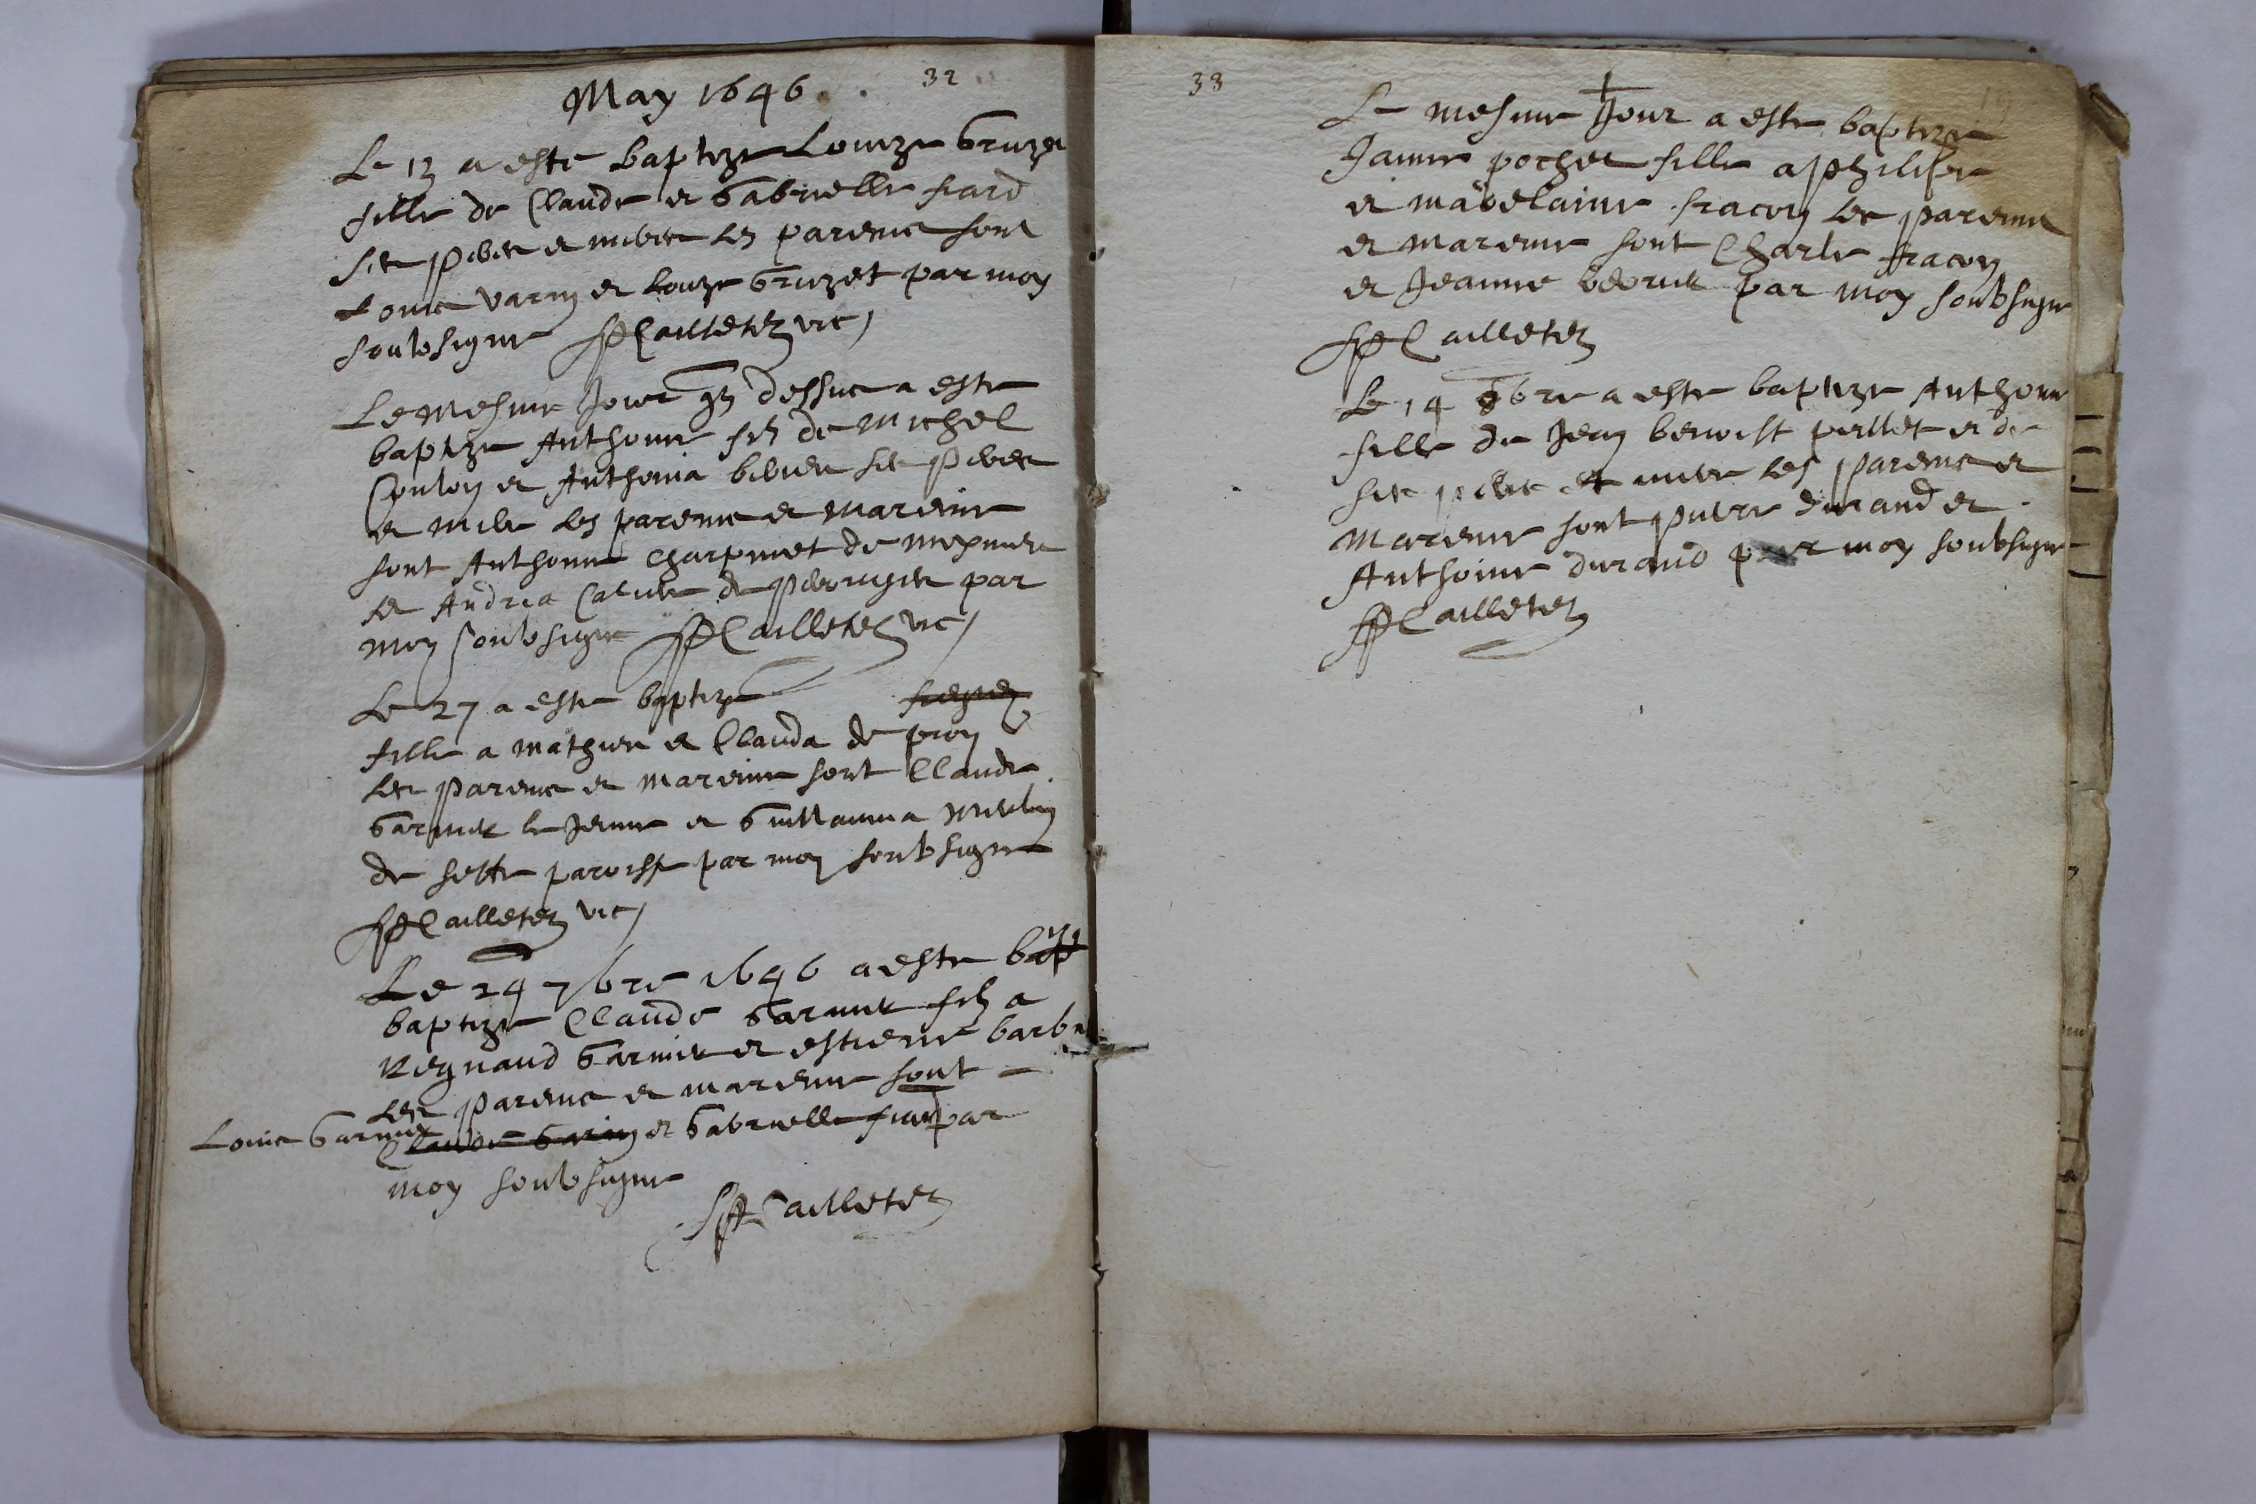 May 1646
32
Le 13 a esté baptize Louize Gruzet
fille de Claude et Gabrielle fiard
ses pere et mere les parens sont
Louis varin et Louze Gruzet par moy
soubsigne Cailleten vic
Le mesme Jour dessus a este
baptize Anthoine filz de Michel
Coulon et Anthonia ses peres
et mere les parens et mareine
sont Anthoine Charpinet de meximieu
et Andrea de perouges par
moy soubsigne Cailleten vic
Le 27 a este baptize
fille a Mathieu et Clauda de pion
Les parens et mareine sont Claude
Garnier le Jeune et Guillauma
de sette paroisse par moy soubsigne
Cailleten vic
Le 24 7bre 1646 a este bap
baptize Claude Garnier filz a
Regnaud Garnier et estiene barb
Les parens et mareine sont
Louis Garnier
Claude Garin et Gabrielle fiard par
moy soubsigne
Cailleten
33
Le mesme Jour a este baptize
Janne pochet fille a philipe
et madelaine fracon les pareins
et mareine sont Charle fracon
et Jeanne par moy soubsigne
Cailleten
Le 14 8bre a este baptize Anthoine
fille de Jean benoist perllet et de
ses pere et mere les parens et
Mareine sont pierre durand et
Anthoine durand par moy soubsigne
Cailleten